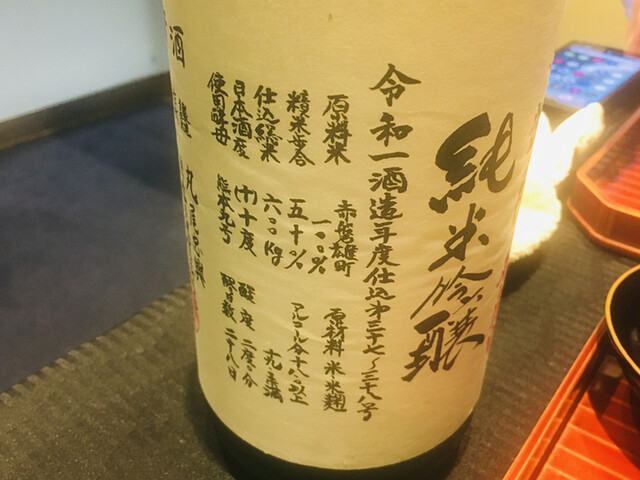 純米吟醸
令和一酒造年度仕込第三七～三八号
原料米 赤磐雄町 一〇〇% 原材料 米 米麹
精米歩合 五十% アルコール分十八以上
仕込総米 六〇〇kg 十九度未満
日本酒度 (十)十度 酸度 二度〇分
使用酵母 熊本九号 醪日数 二十八日